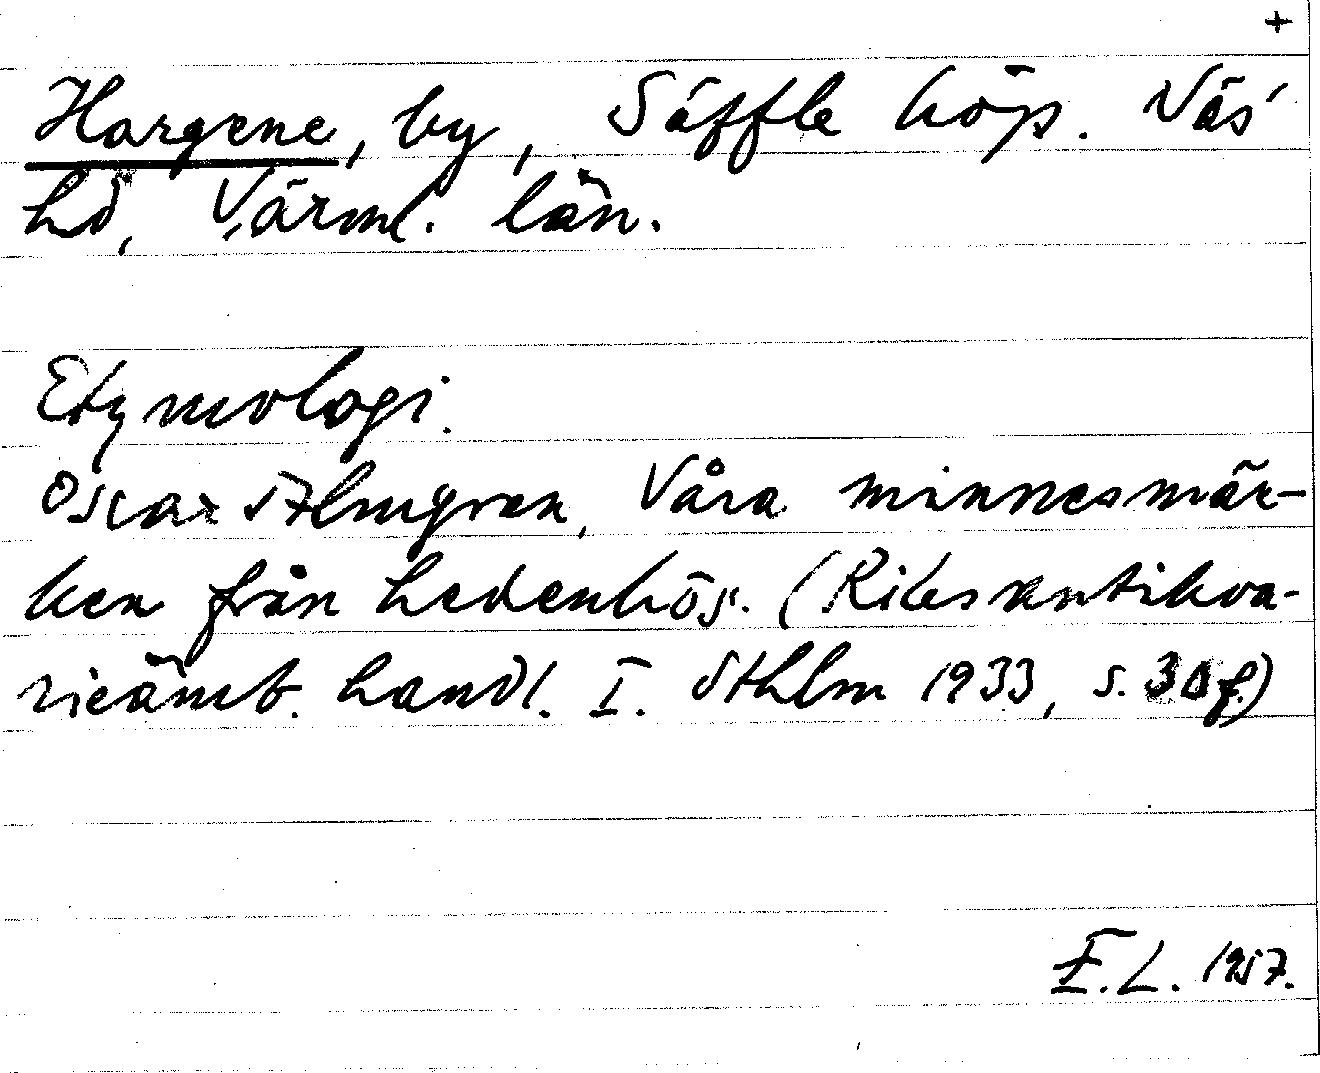 +
Hargene, by, Säffle köp. Näs'
hd, Värml. län.
Etymologi.
Oscar Almgren, Våra minnesmär-
ken från hedenhös. (Riksantikva-
rieämb. handl. I. Sthlm 1933, s. 30 f.)
E.L. 1957.